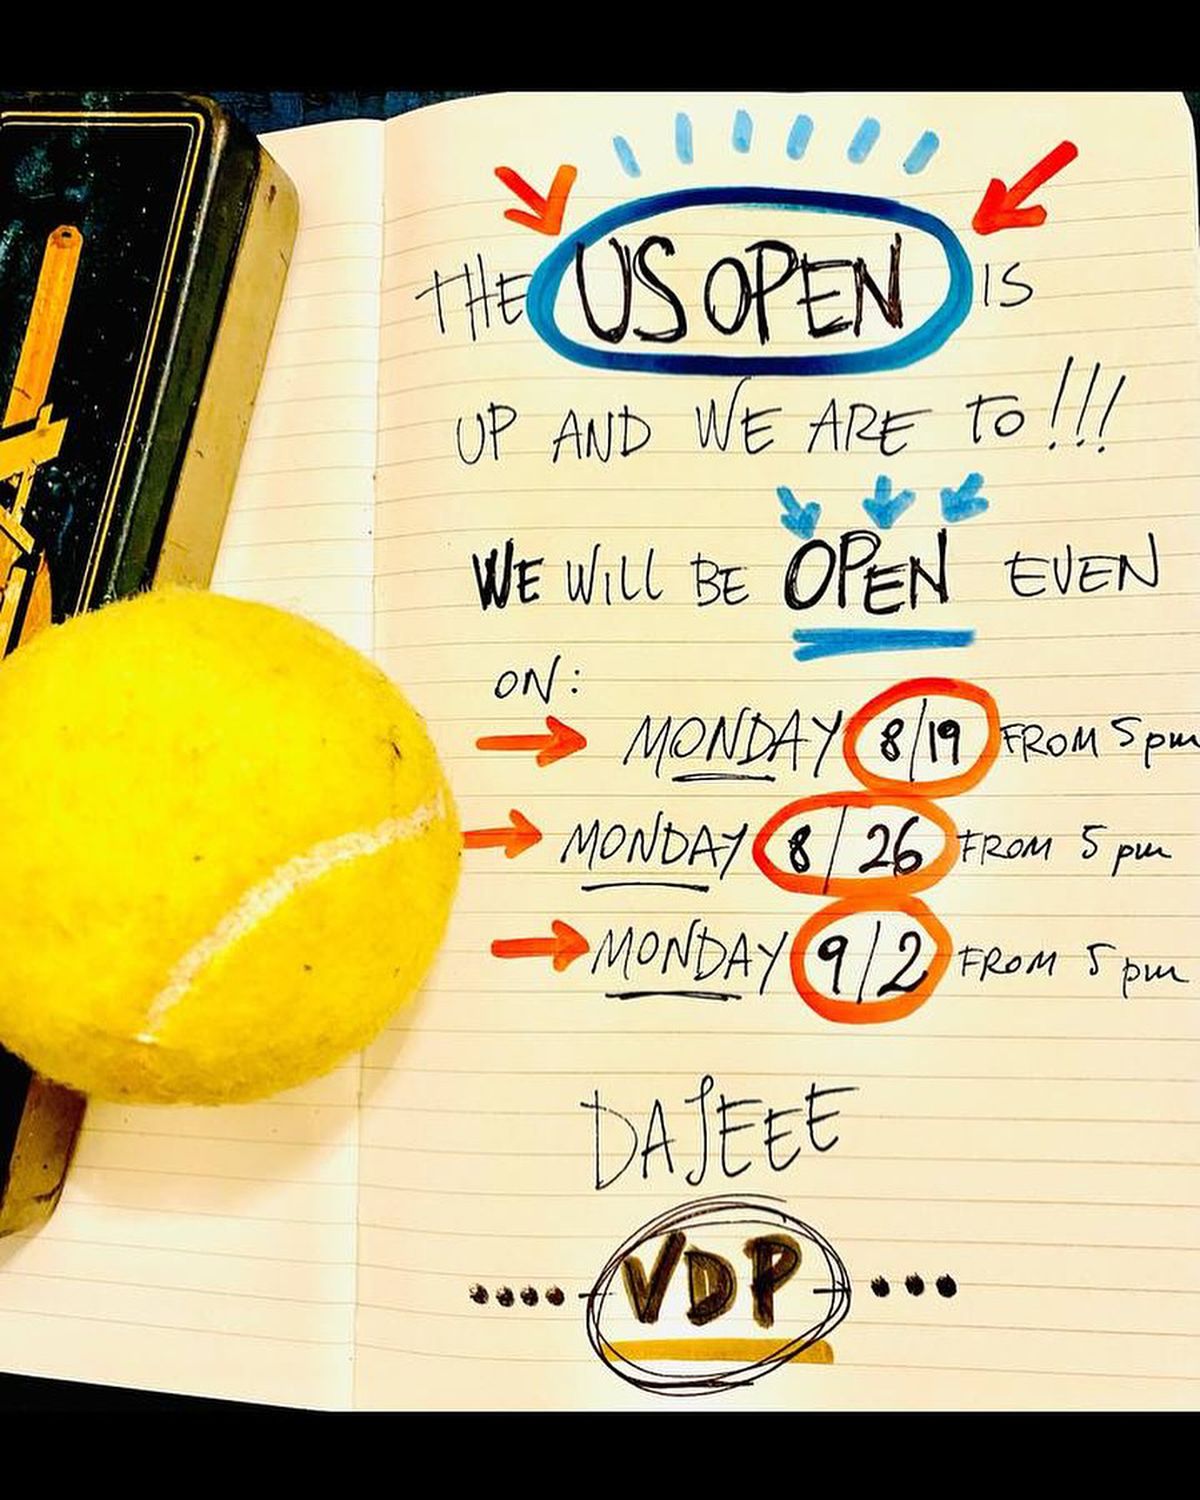 THE US OPEN IS
UP AND WE ARE TO!!!
WE WILL BE OPEN EVEN
ON:
MONDAY 8/19 FROM 5pm
MONDAY 8/26 FROM 5 pm
MONDAY 9/2 FROM 5 pm
DAJEEE
VDP